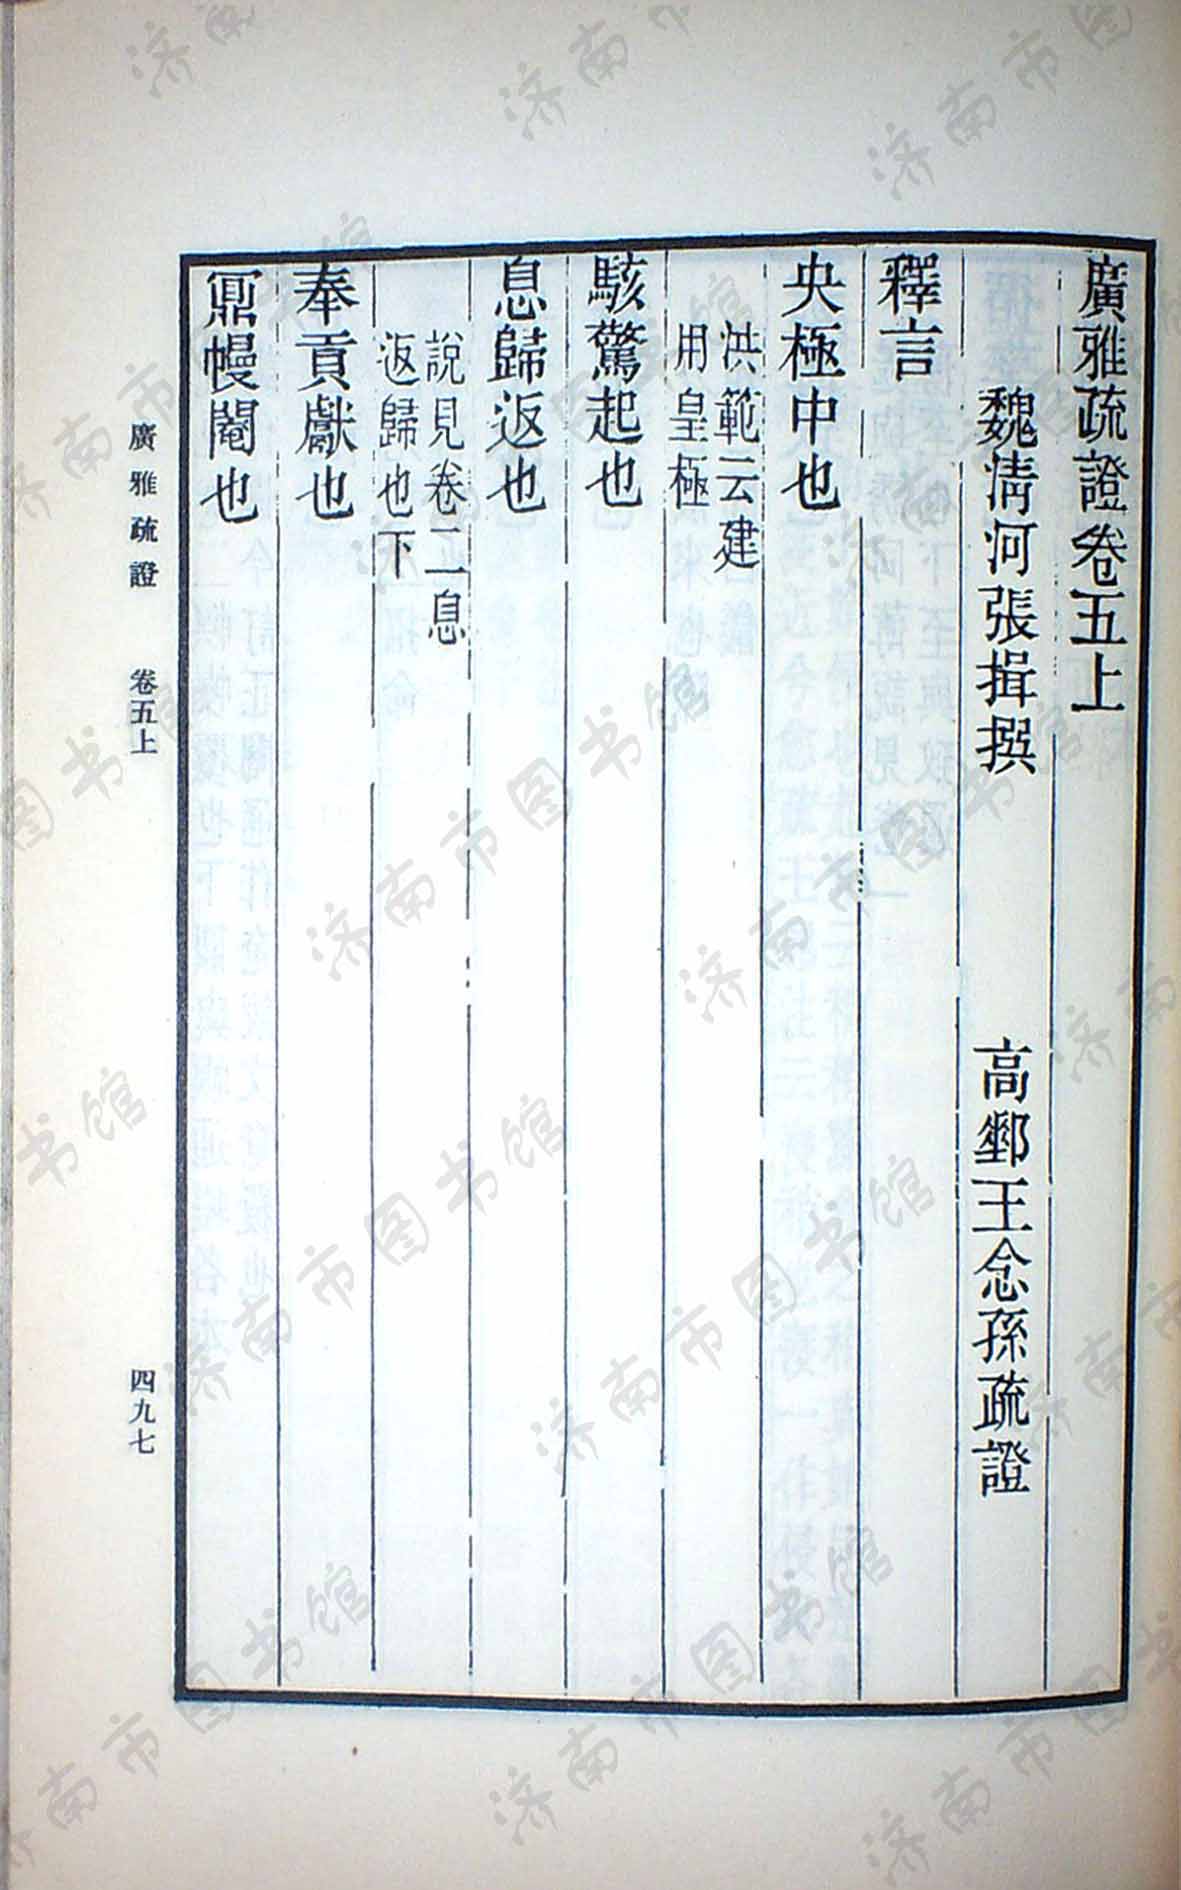 廣雅疏證卷五上
魏清河張揖撰　高郵王念孫疏證
釋言
央極中也
洪範云建
用皇極
駭驚起也
息歸返也
說見卷二息
返歸也下
奉貢獻也
幔閹也
廣雅疏證　卷五上　四九七
济南市图书馆